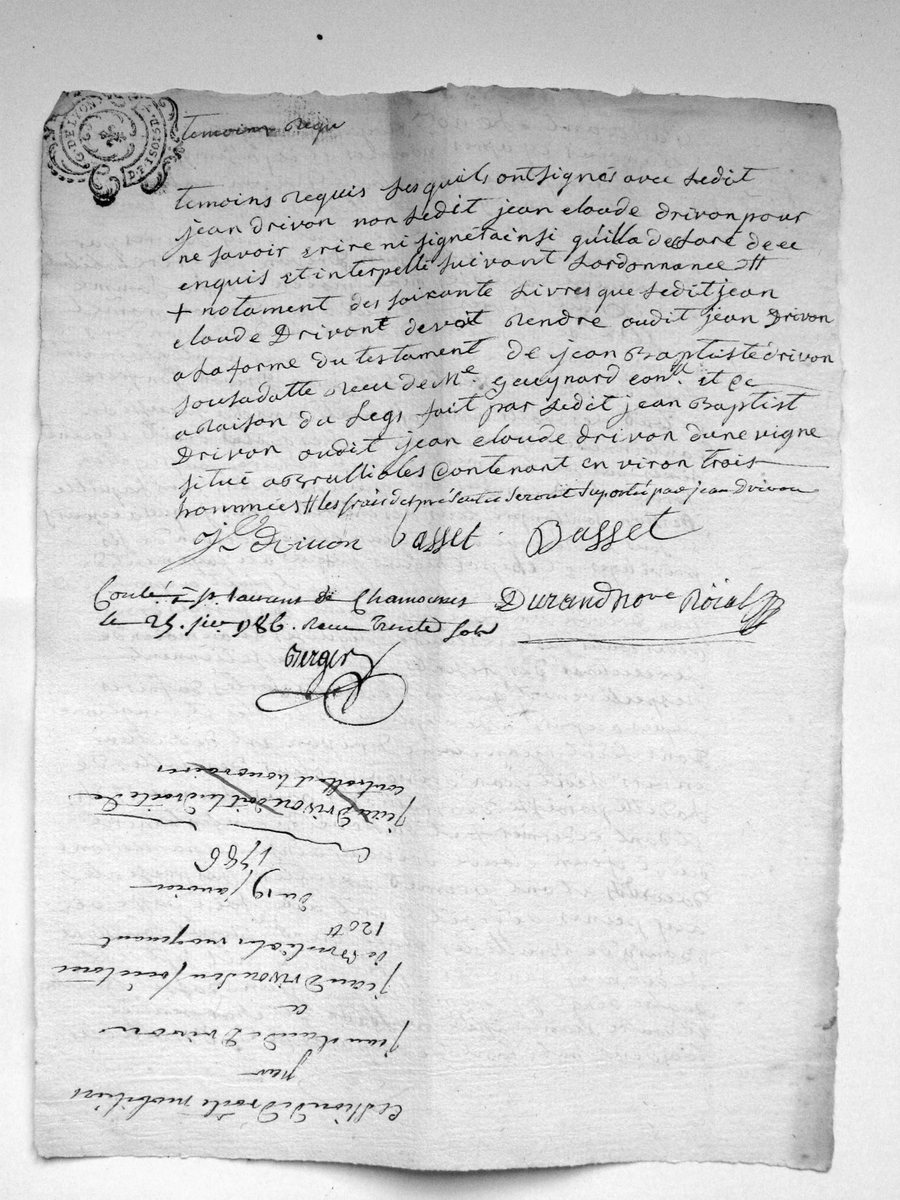 G. DE LYON
temoins requ
temoins requis lesquels ont signés avec ledit
jean drivon non ledit jean claude drivon pour
ne savoir ecrire ni signer ainsi quilla declaré de ce
enquis et interpellé suivant lordonnance #
+ notament des soixante livres que ledit jean
claude Drivont devoit rendre audit jean Drivon
a la forme du testament de jean Baptiste drivon
sous sa datte recu de Me. Guynard conr. et Ce
a raison du Legs fait par ledit jean Baptist
Drivon audit jean claude drivon dune vigne
situé a Brulliolles contenant en viron trois
hommées # les frais des presentes seront suportés par jean Drivon
J C drivon basset Basset
Conlé à st. laurent de Chamousset Durand No re Roial
le 25. jer 1786. recu trente sols
Berger
jean Drivon doit les droits de
controlle et honoraires
1786
du 19 janvier
120 #
de Brulioles moyenant
jean Drivon son
a
jean claude Drivon
par
Cession de Droits mobiliers